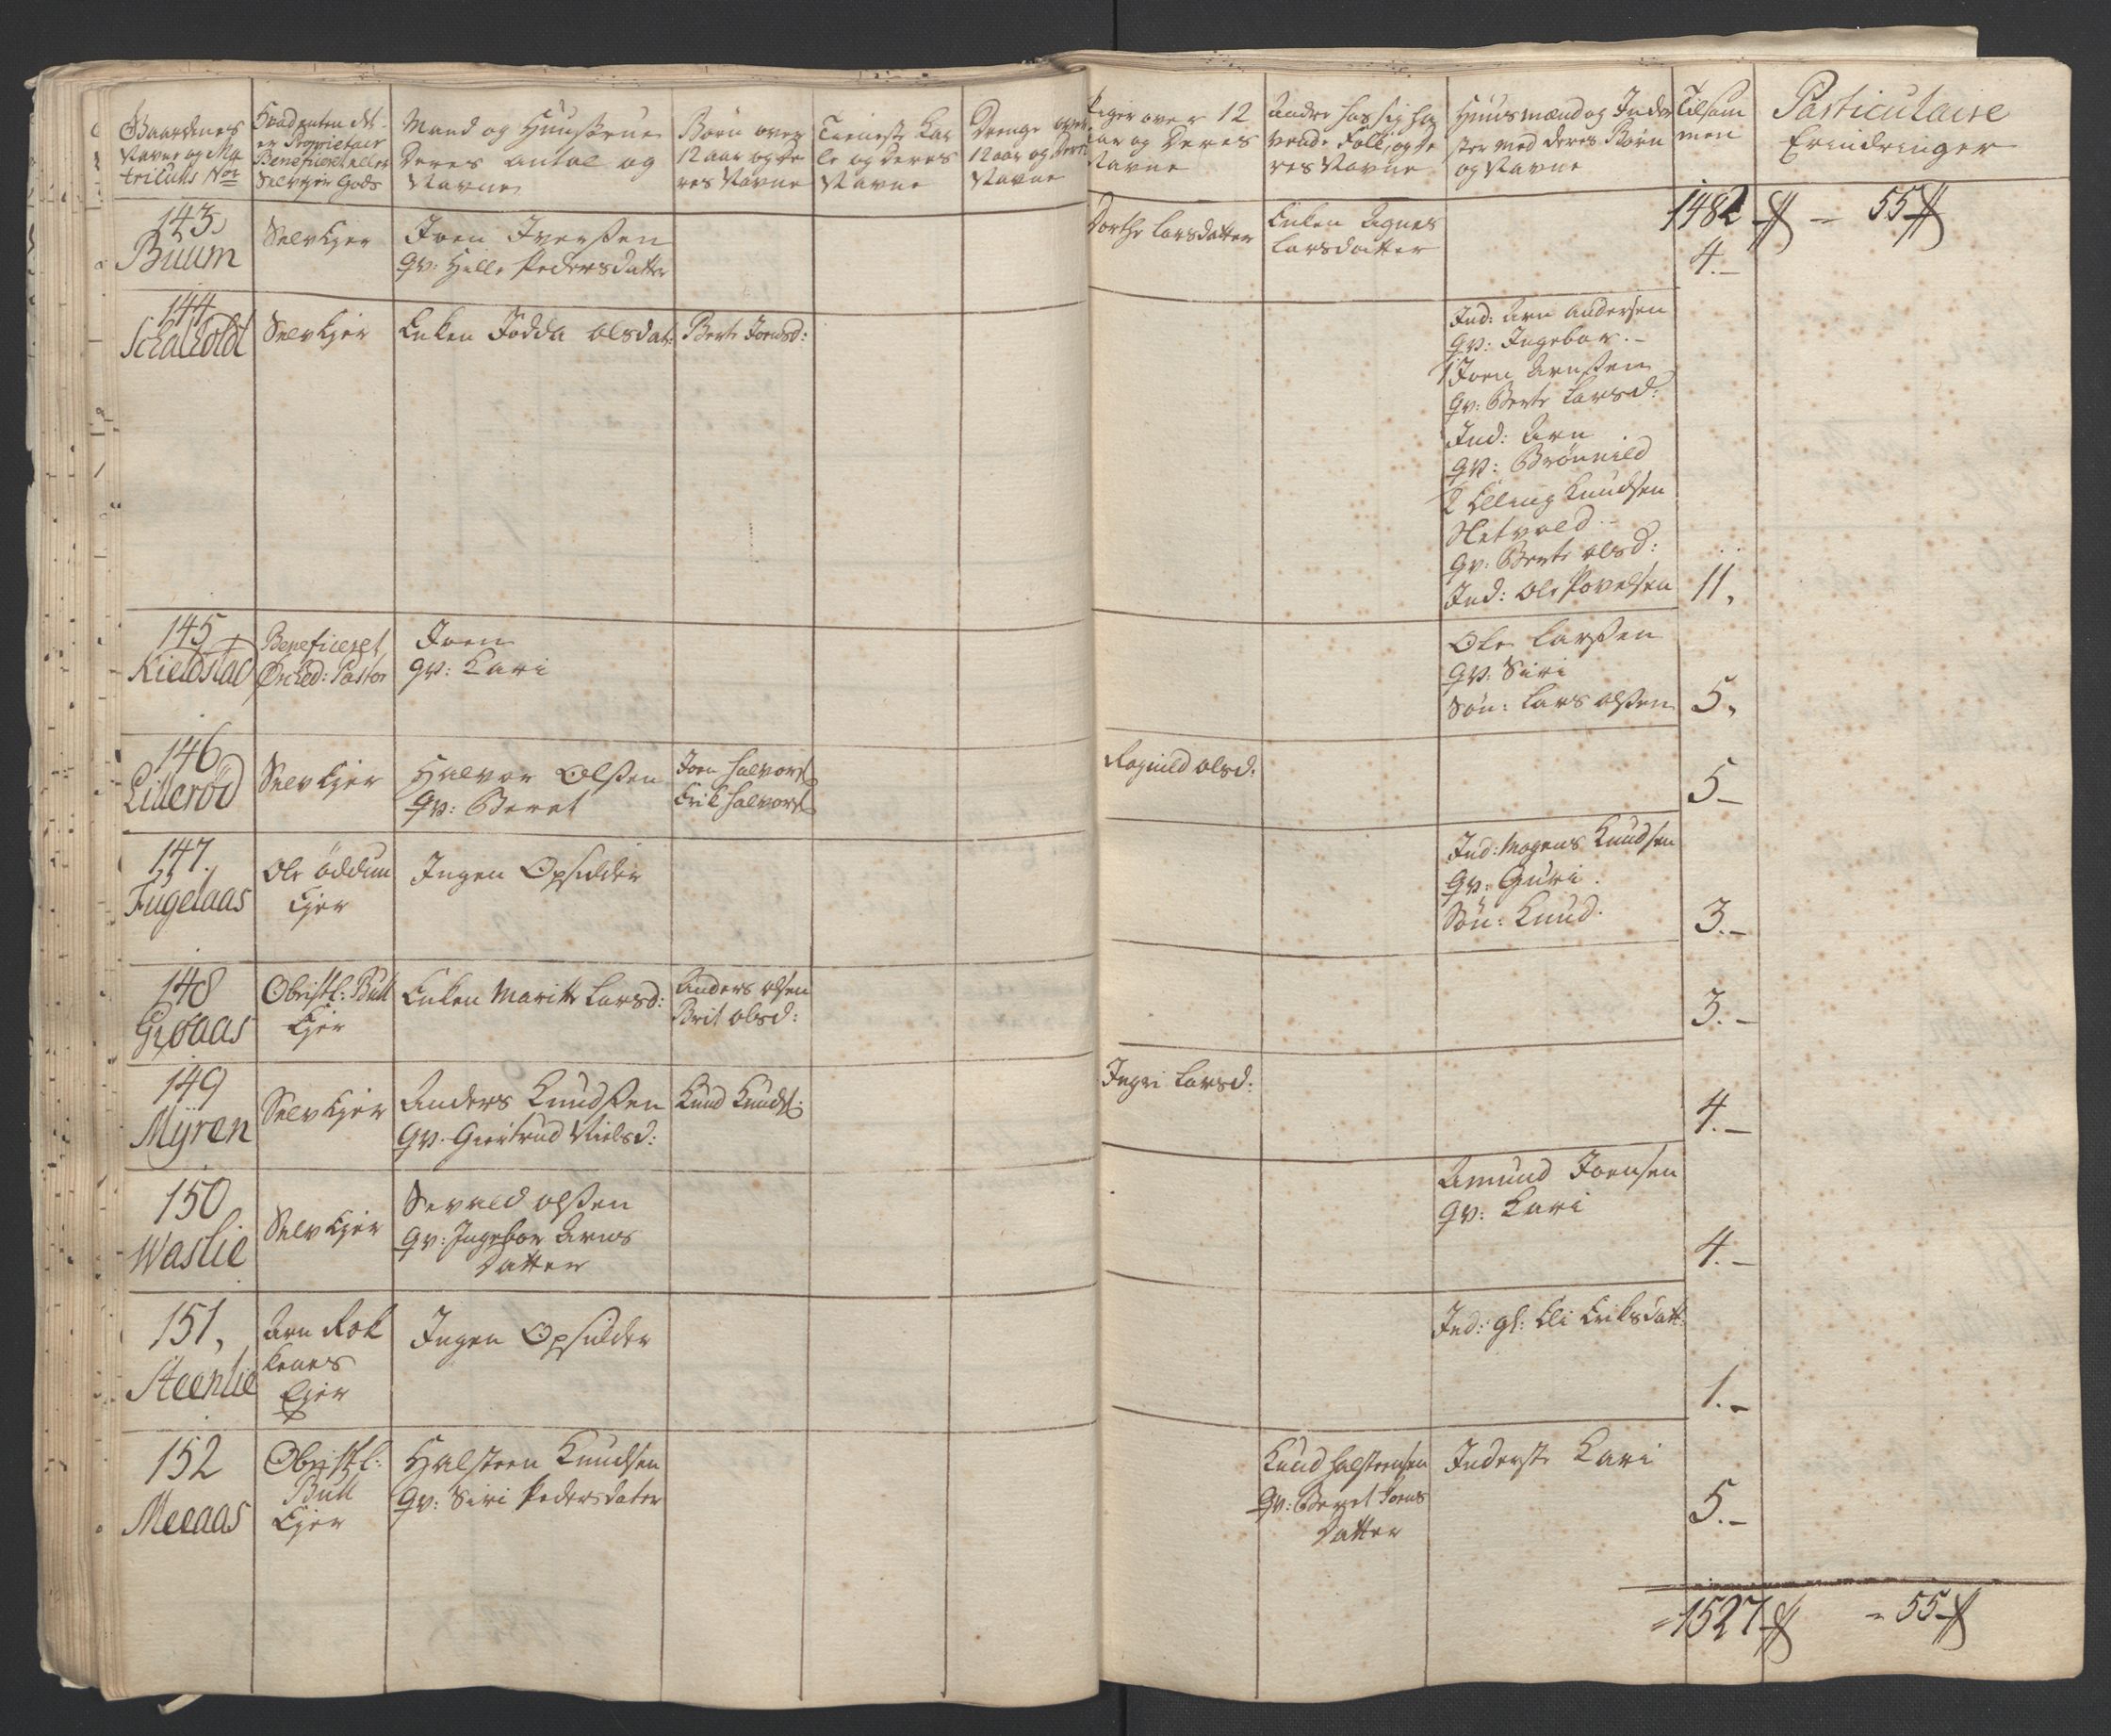 Gaardenes
Navne og Ma
triculs Nor
Hvad enten det
er Proprietair
Beneficeret eller
Selveijer Gods
Mand og Huustrue
Deres antal og
Navne
Børn over
12 aar og de
res Navne
Tieneste Kar
le og Deres
Navne
Drenge over
12 aar og Deris
Navne
Piger over 12
aar og Deris
Navne
Andre hos sig ha
vende Folk, og de
res Navne
Huusmænd og Inder
ster med deres Børn
og Navne
Tilsam
men
Particulaire
Erindringer
1482 - 55
143,
Buum
Selv Ejer
Joen Iverssen
qv: Helle Pedersdatter
Dorthe Larsdatter
Enken Agnes
Larsdatter
4.-
144
Schalholdt
Selv Ejer
Enken Jødda olsdat:
Berte Joensd:
Ind: Arn Andersen
qv: Ingebor.-
1 Joen Arnssen
qv: Berte Larsd:
Ind: Arn
qv: Brønnild
2 Elling Knudsen
Sletvold.-
qv: Berte olsd:
Ind: Ole Povelsen
11,
145
Kieldstad
Beneficeret
Pastor
Joen
qv: Kari
Ole Larssen
qv: Siri
Søn: Lars olssen
5,
146
Lillerød
Selv Ejer
Halvor Olssen
qv: Beret
Joen Halvors:
Erik Halvors:
Ragnild olsd:
5-
147.
Fugelaas
Ole ødduu
Ejer
Ingen Opsidder
Ind: Mogens Knudsen
qv: Guri.
Søn: Knud.
3.-
148
Groaas
Obristl: Bull
Ejer
Enken Maritte Larsd:
Anders olsen
Brit olsd:
3.-
149
Mÿren
Selv Ejer
Anders Knudssen
qv. Giertrud Nielsd:
Knud Knuds:
Ingri Larsd:
4.-
150
Waslie
Selv Ejer
Sevald olssen
qv: Ingebor Arns
datter
Amund Joensen
qv: Kari
4.-
151,
Steenlie
Arn Rok
kenes
Ejer
Ingen Opsidder
Ind: gl: Eli Eriksdatt:
1.-
152
Meeaas
Obristl:
Bull
Ejer
Halsteen Knudsen
qv: Siri Pedersdater
Knud Halsteensen
qv: Beret Joens
datter
Inderste Kari
5.-
1527 - 55